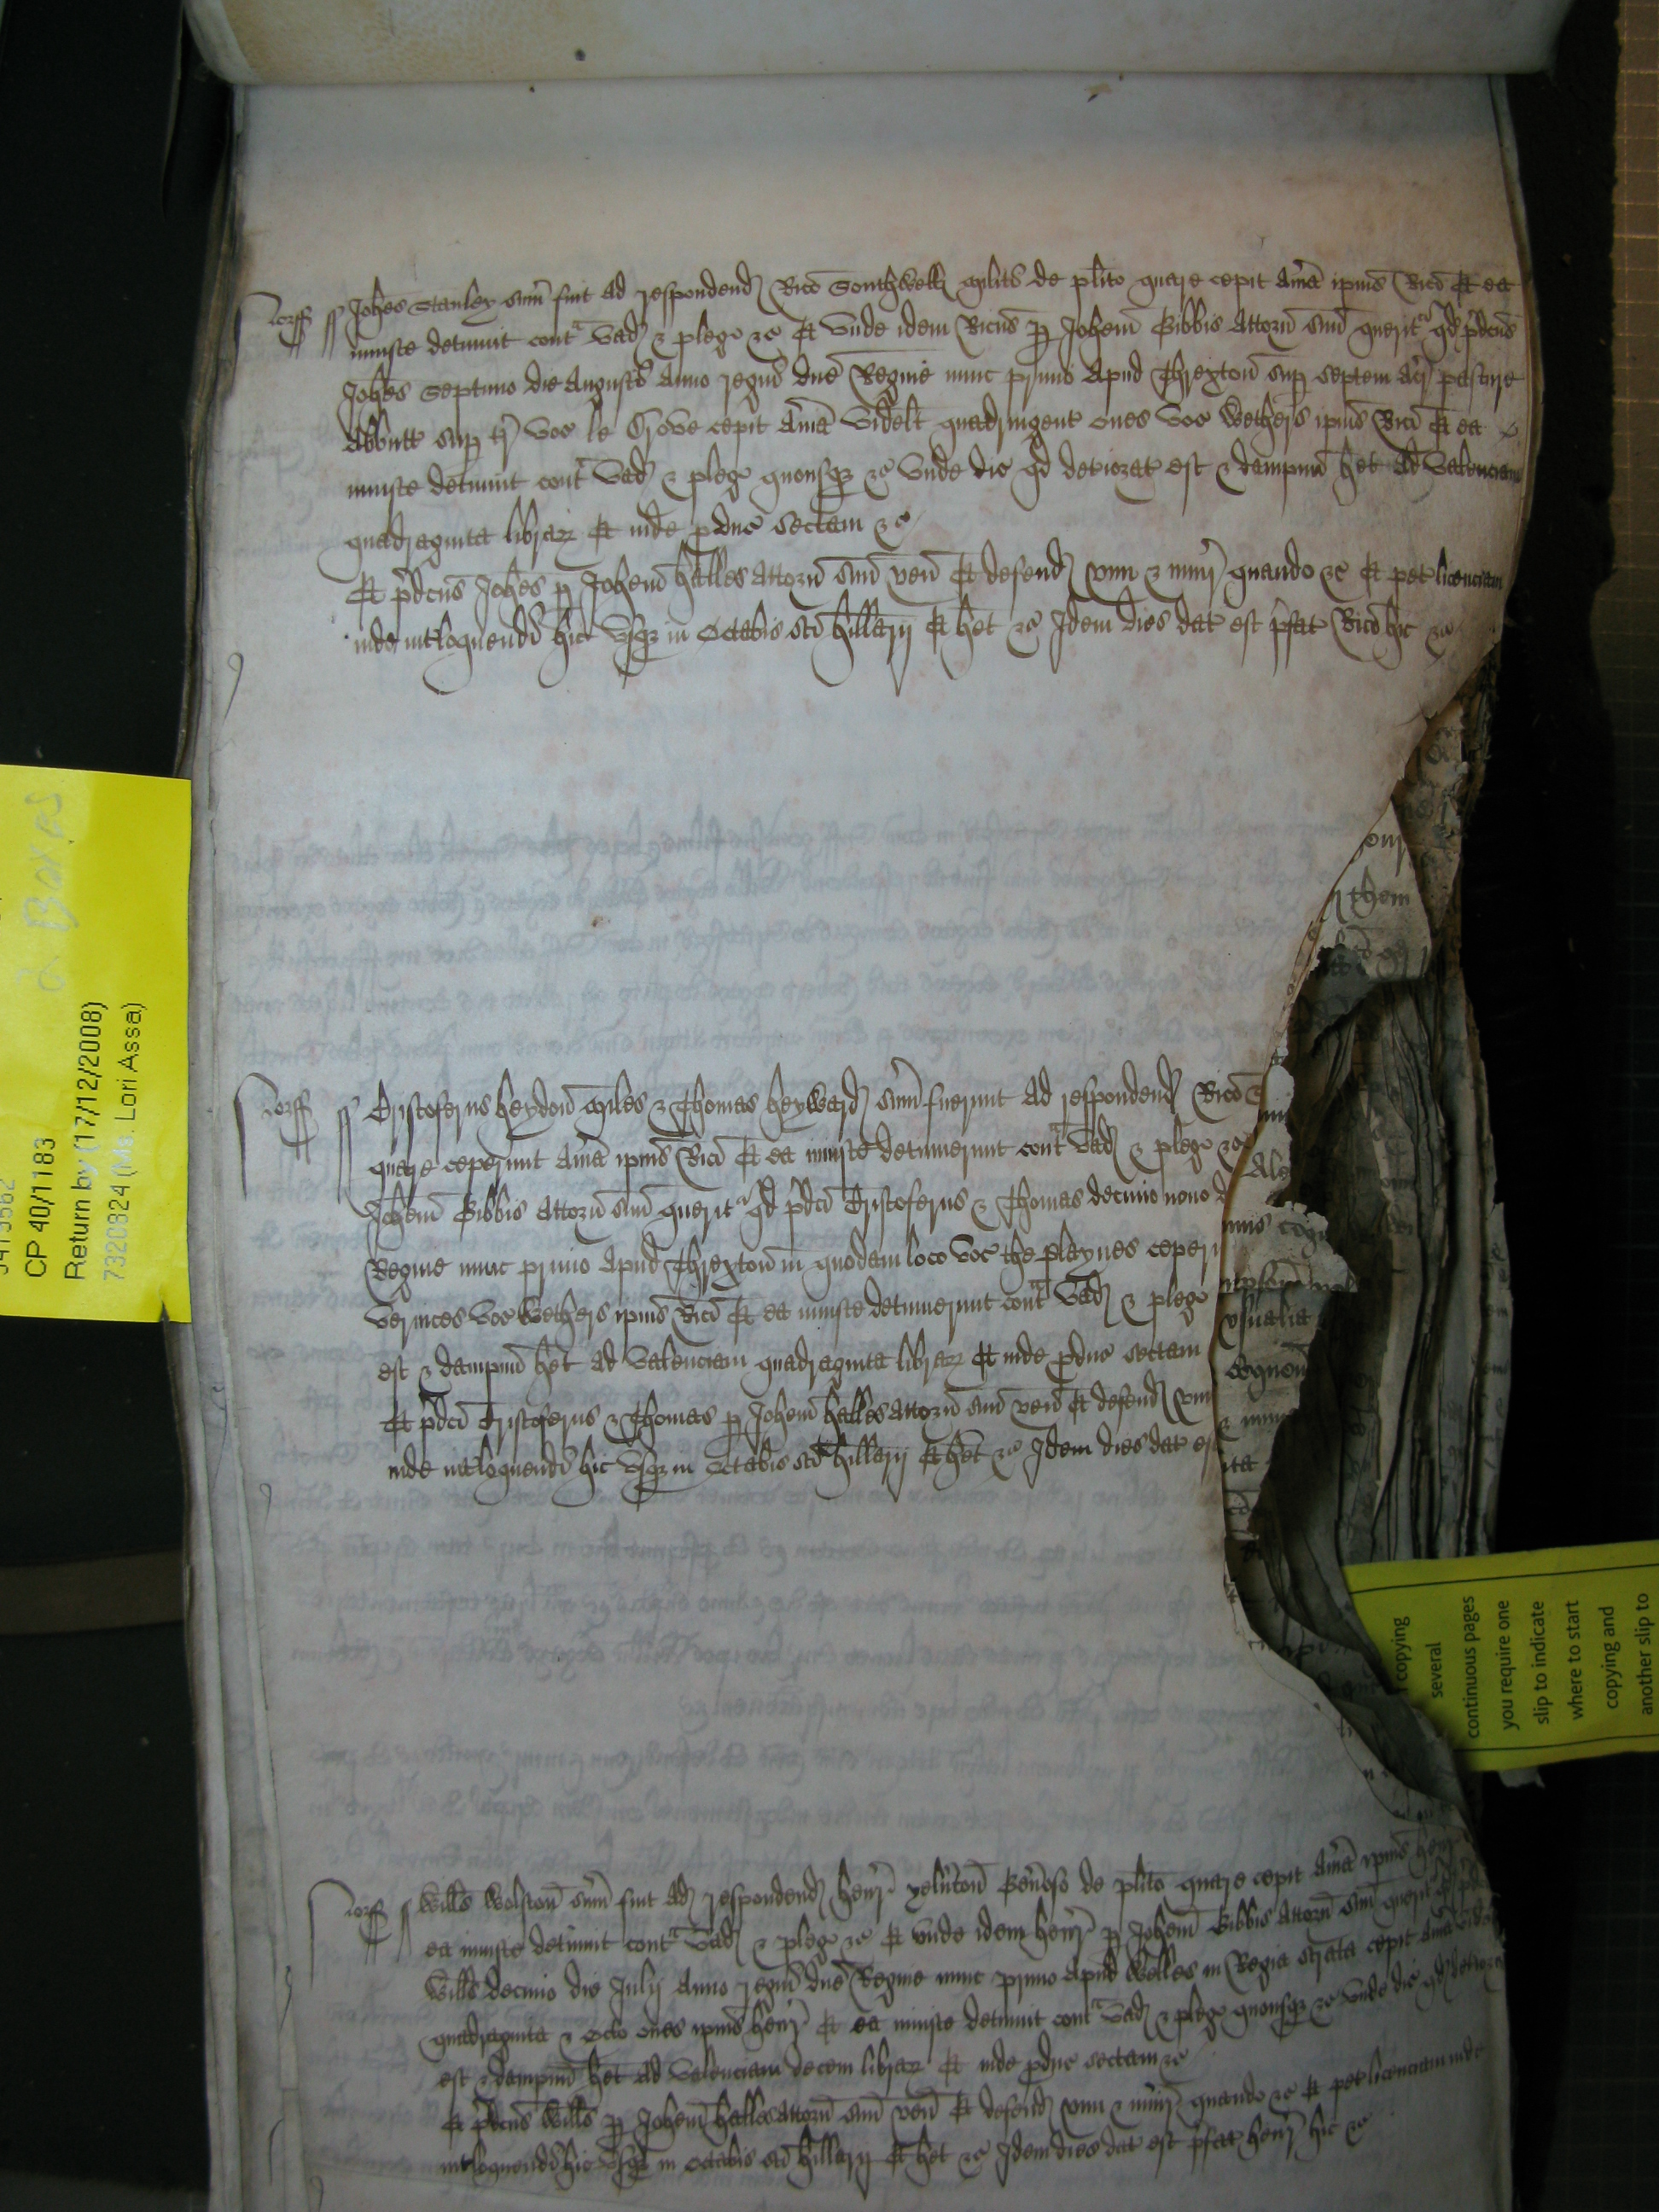 Norff ss Johes Stanley sum fuit ad respondend Rico Southwell militi de plito quare cepit av̄ia ipius Rici Et ea
iniuste detinuit cont vad & pleg &c Et unde idem Ricus p Johem Gibbis attorn suu querit qd pdcus
Johes septimo die Augusti anno regni dne Regine nunc primo apud Threxton sup septem acr pasture
abbutt sup tr voc le Grove cepit avia videlt quadringent oves voc Wethers ipius Rici Et ea
iniuste detinuit cont vad & pleg quousq &c Unde dic qd deteriorat est & dampnu het ad valenciam
quadraginta librar Et inde pduc sectam &c
Et pdcus Johes p Johem halles attorn suu ven Et defend vim & iniur quando &c Et pet licenciam
inde intloquendi hic usq in Octabis sci hillarij Et het &c Idem dies dat est pfat Rico hic &c
Norff ss Cristoferus heydon miles & Thomas heyward sum fuerunt ad respondend Rico
quare ceperunt avia ipius Rici Et ea iniuste detinuerunt cont vad & pleg &c
Johem Gibbis attorn suu querit qd pdci Cristoferus & Thomas decimo nono d
Regine nunc primo apud Threxton in quodam loco voc the playnes ceper
vervices voc Wethers ipius Rici Et ea iniuste detinuerunt cont vad & pleg
est & dampnu het ad valenciam quadraginta librar Et inde pduc sectam
Et pdci Cristoferus & Thomas p Johem halles attorn suu ven Et defend vim
inde intloquendi hic usq in Octabis sci hillarij Et het &c Idem dies dat est
Norff ss Wills Wolston sum fuit ad respondend henr yelvton Genoso de plito quare cepit avia ipius henr
ea iniuste detinuit cont vad & pleg &c Et unde idem henr p Johem Gibbis attorn suu querit qd pdcus
Wills decimo die Julij anno regni dne Regine nunc primo apud Welles in Regia strata cepit avia videlt
quadraginta & octo oves ipius henr Et ea iniuste detinuit cont vad & pleg quousq &c Unde dic qd deteriorat
est & dampnu het ad valenciam decem librar Et inde pduc sectam &c
Et pdcus Wills p Johem halles attorn suu ven Et defend vim & iniur quando &c Et pet licenciam inde
intloquendi hic usq in octabis sci hillarij Et het &c Idem dies dat est pfat henr hic &c
CP 40/1183
Return by (17/12/2008)
7320824 (Ms. Lori Assa)
copying
several
continuous pages
you require one
slip to indicate
where to start
copying and
another slip to